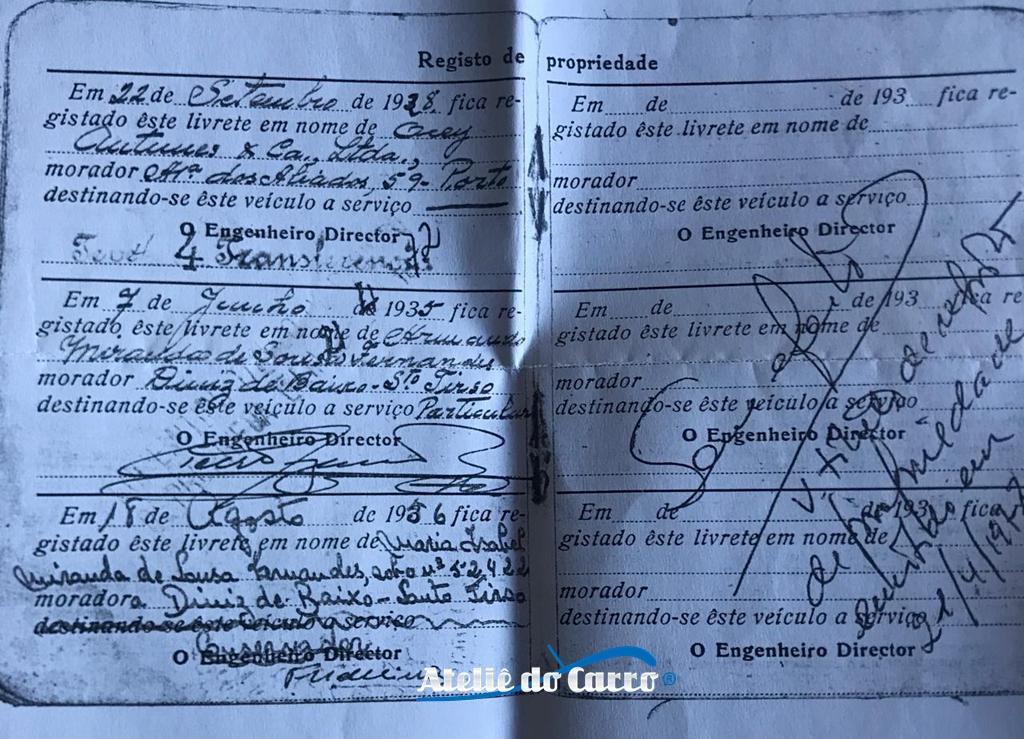 Registo de propriedade
Em 22 de Setembro de 1928 fica re-
gistado êste livrete em nome de
Antunes & Ca., Ltda.,
morador Avª dos Aliados, 59 - Porto
destinando-se êste veículo a serviço
O Engenheiro Director
Em 7 de Junho de 1935 fica re-
gistado êste livrete em nome de Armando
Miranda de Sousa Fernandes
morador Diniz de Baixo - Stº Tirso
destinando-se êste veículo a serviço Particular
O Engenheiro Director
Em 18 de Agosto de 1936 fica re-
gistado êste livrete em nome de Maria Isabel
Miranda de Sousa Fernandes, nº 52,422
moradora Diniz de Baixo - Santo Tirso
destinando-se êste veículo a serviço
O Engenheiro Director
Em de de 193 fica re-
gistado êste livrete em nome de
morador
destinando-se êste veículo a serviço
O Engenheiro Director
Em de de 193 fica re-
gistado êste livrete em nome de
morador
destinando-se êste veículo a serviço
O Engenheiro Director
Em de de 193 fica re-
gistado êste livrete em nome de
morador
destinando-se êste veículo a serviço
O Engenheiro Director
de propriedade
em
Ateliê do Carro®